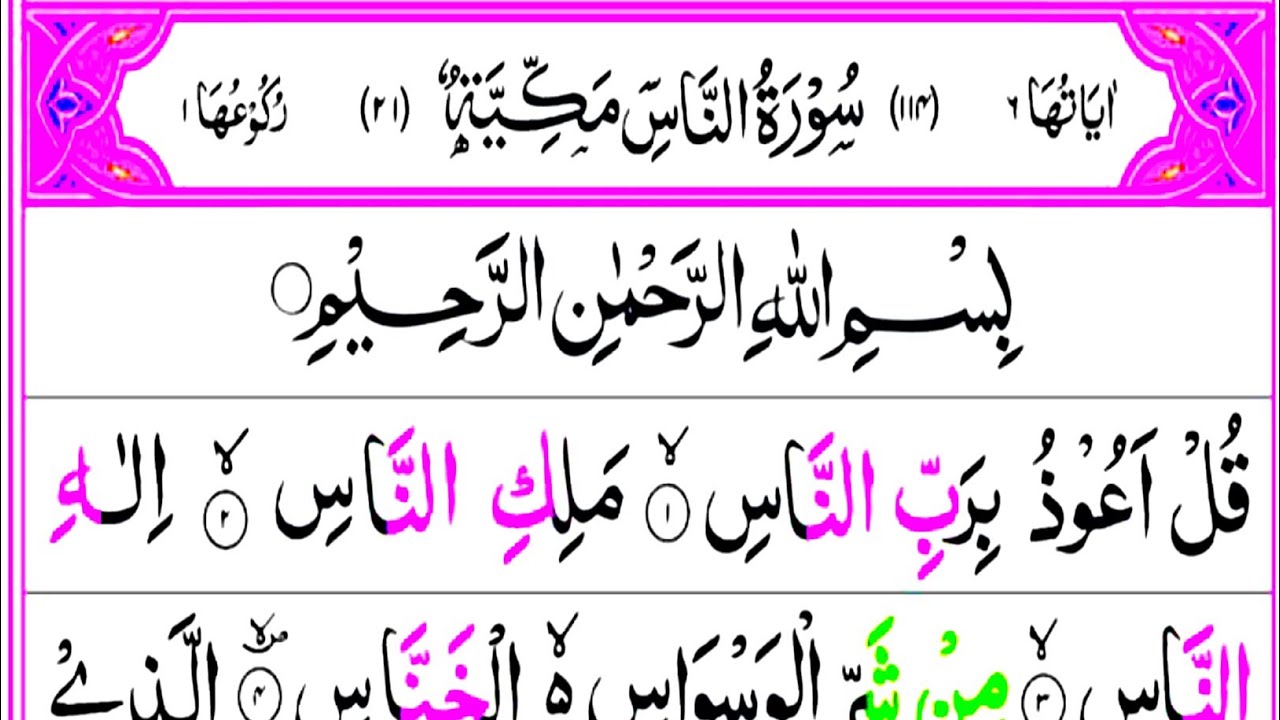 اٰيَاتُهَا ٦ (١١٤) سُوْرَةُ النَّاسِ مَكِّيَّةٌ (٢١) رُكُوْعُهَا ١
بِسْمِ اللّٰهِ الرَّحْمٰنِ الرَّحِيْمِ
قُلْ اَعُوْذُ بِرَبِّ النَّاسِ ۙ ١ مَلِكِ النَّاسِ ۙ ٢ اِلٰهِ
النَّاسِ ۙ ٣ مِنْ شَرِّ الْوَسْوَاسِ ۙ۵ الْخَنَّاسِ ٤ الَّذِيْ